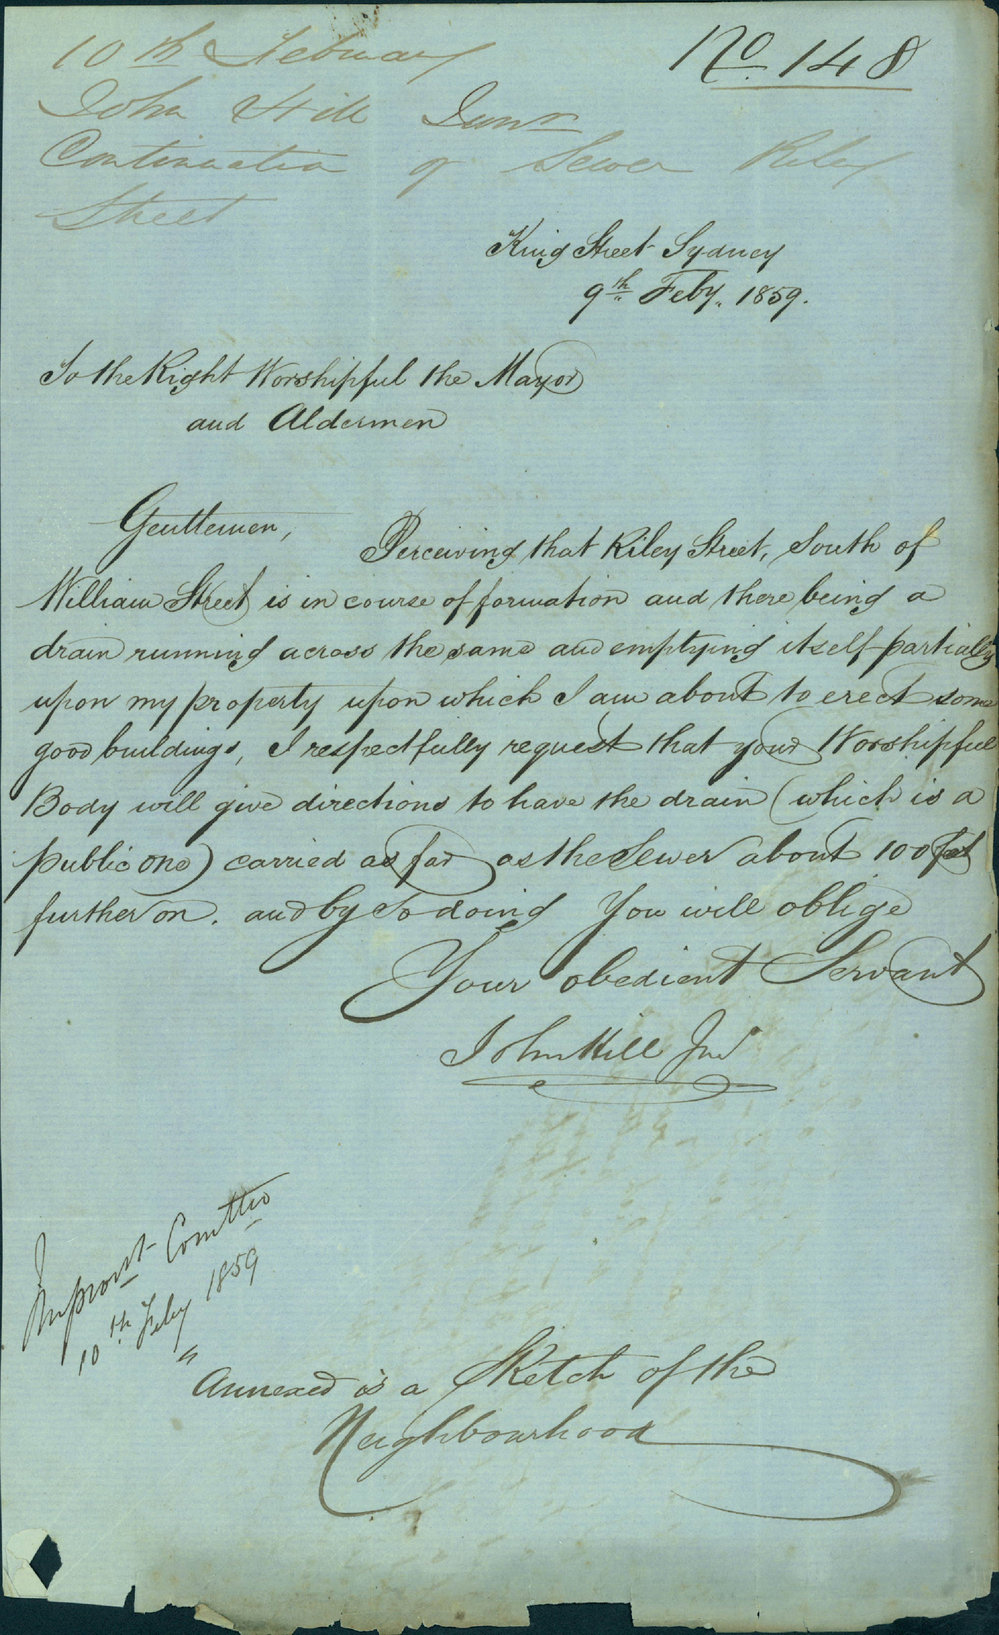 10th February
No. 148
John Hill Junr
Continuation of Sewer Riley
Street
King Street Sydney
9th Feby. 1859.
To the Right Worshipful the Mayor
and Aldermen
Gentlemen,
Perceiving that Riley Street, South of
William Street is in course of formation and there being a
drain running across the same and emptying itself partially
upon my property upon which I am about to erect some
good buildings, I respectfully request that your Worshipful
Body will give directions to have the drain (which is a
public one) carried as far as the Sewer about 100 feet
further on. and by so doing You will oblige
Your obedient Servant
John Hill Jnr
Improvt Comttee
10th Feby 1859
Annexed is a Sketch of the
Neighbourhood